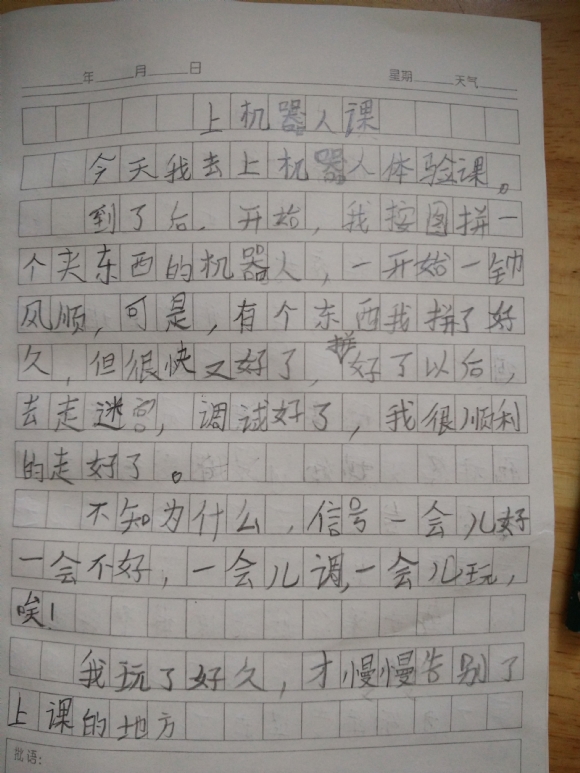 年 月 日 星期 天气
上机器人课
今天我去上机器人体验课。
到了后，开始，我按图拼一
个夹东西的机器人，一开始一帆
风顺，可是，有个东西我拼了好
久，但很快又好了，拼好了以后，
去走迷宫，调试好了，我很顺利
的走好了。
不知为什么，信号一会儿好
一会不好，一会儿调，一会儿玩，
唉！
我玩了好久，才慢慢告别了
上课的地方
批语：